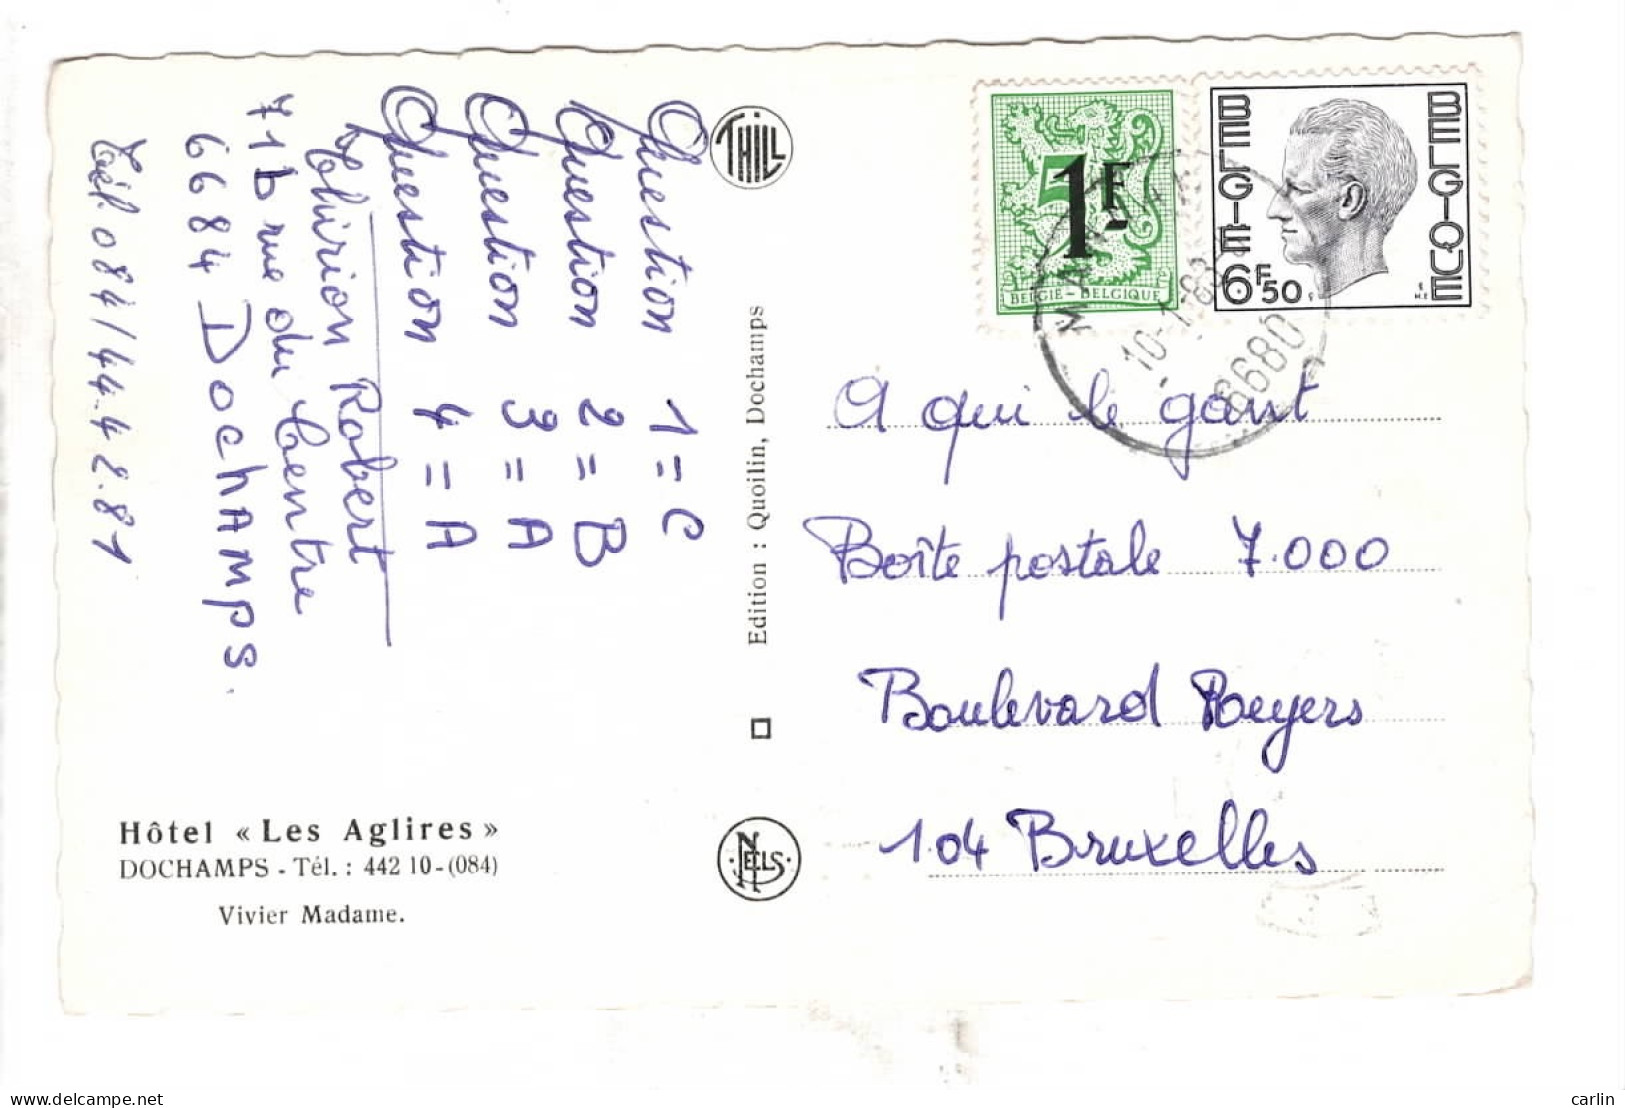 Question 1 = C
Question 2 = B
Question 3 = A
Question 4 = A
Thirion Robert
71b rue du Centre
6684 Dochamps.
Tél. 084/44.4 2.81
THILL
Edition : Quoilin, Dochamps
NELS
Hôtel « Les Aglires »
DOCHAMPS - Tél. : 442 10-(084)
Vivier Madame.
1F
BELGIE - BELGIQUE
BELGIË
BELGIQUE
6F50
10-1
6680
A qui le gant
Boîte postale 7.000
Boulevard Reyers
1.04 Bruxelles
carlin